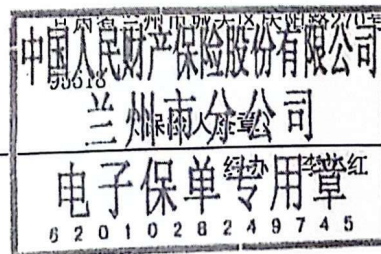 中国人民财产保险股份有限公司
95518
兰州市分公司
电子保单专用章
6201028249745